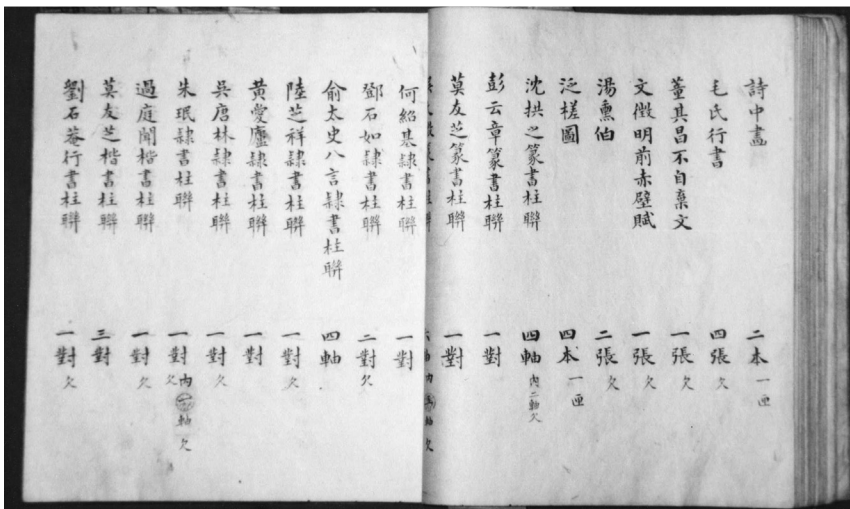 詩中畫 二本 一匣
毛氏行書 四張 欠
董其昌不自棄文 一張 欠
文徵明前赤壁賦 一張 欠
湯熏伯 二張 欠
泛槎圖 四本 一匣
沈拱之篆書柱聯 四軸 內二軸欠
彭云章篆書柱聯 一對
莫友芝篆書柱聯 一對
篆書柱聯 六軸 內 軸欠
何紹基隸書柱聯 一對
鄧石如隸書柱聯 二對 欠
俞太史八言隸書柱聯 四軸
陸芝祥隸書柱聯 一對 欠
黃愛廬隸書柱聯 一對
吳唐林隸書柱聯 一對 欠
朱珉隸書柱聯 一對 欠 內一軸欠
過庭聞楷書柱聯 一對 欠
莫友芝楷書柱聯 三對
劉石菴行書柱聯 一對 欠